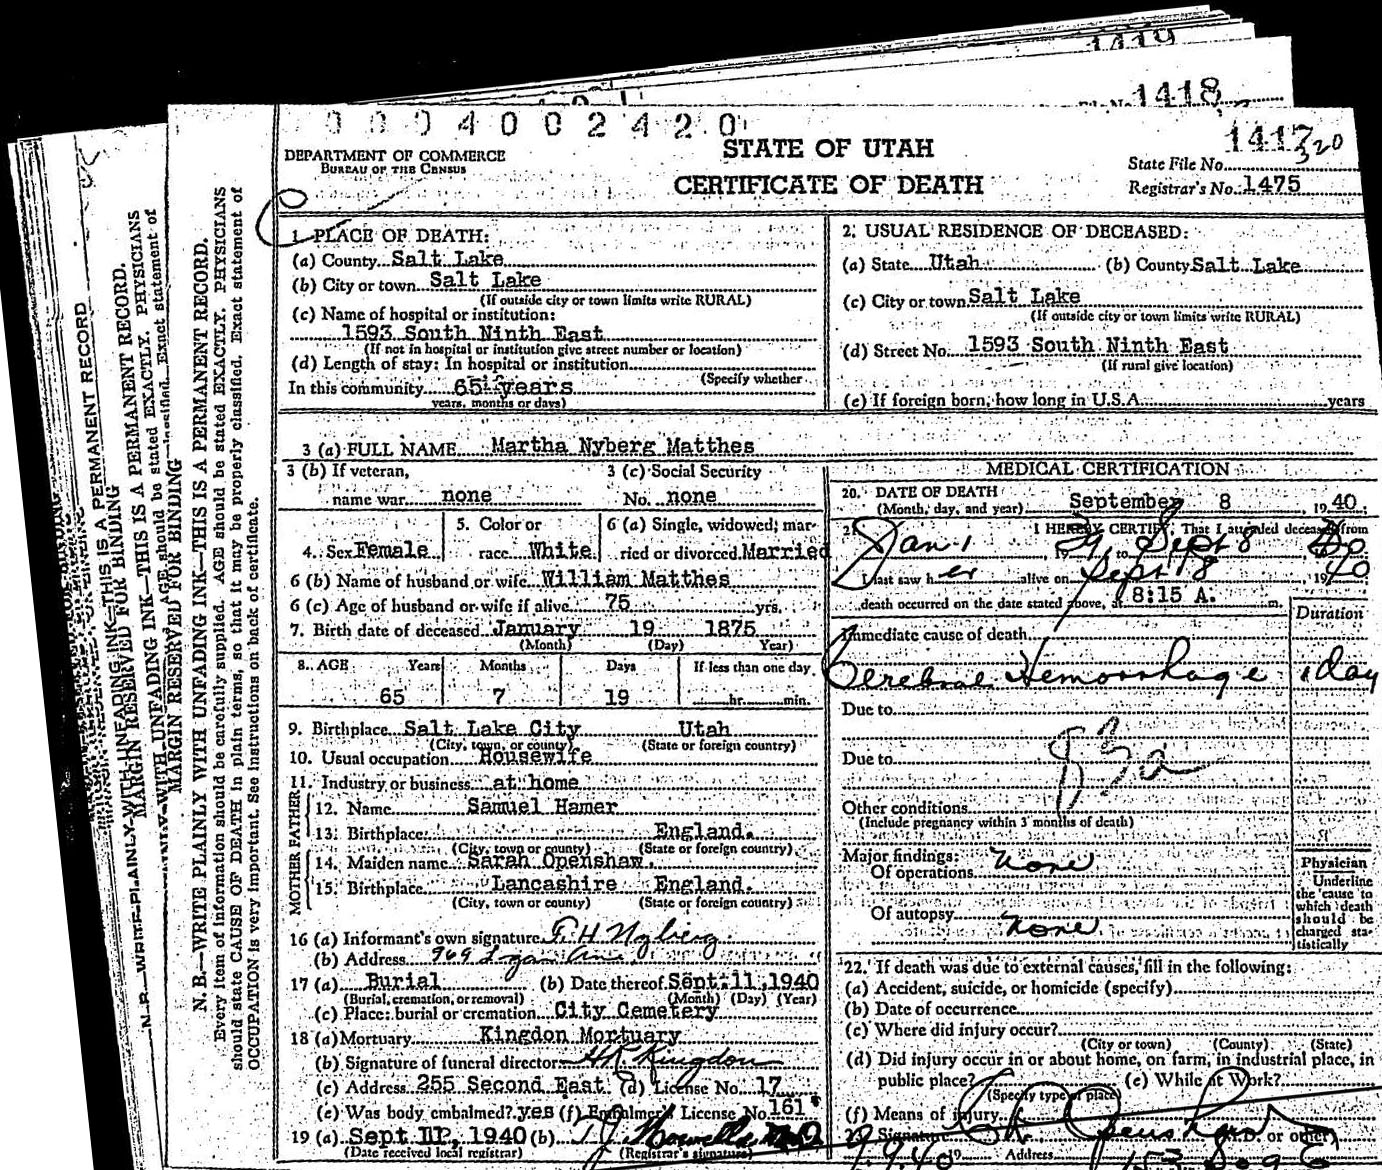 1419
1418
0004002420
1417
320
DEPARTMENT OF COMMERCE
BUREAU OF THE CENSUS
STATE OF UTAH
CERTIFICATE OF DEATH
State File No.
Registrar's No. 1475
1. PLACE OF DEATH:
(a) County Salt Lake
(b) City or town Salt Lake
(If outside city or town limits write RURAL)
(c) Name of hospital or institution:
1593 South Ninth East
(If not in hospital or institution give street number or location)
(d) Length of stay: In hospital or institution
(Specify whether
In this community 65 years
years, months or days)
2. USUAL RESIDENCE OF DECEASED:
(a) State Utah (b) County Salt Lake
(c) City or town Salt Lake
(If outside city or town limits write RURAL)
(d) Street No. 1593 South Ninth East
(If rural give location)
(e) If foreign born, how long in U.S.A. years
3 (a) FULL NAME Martha Nyberg Matthes
3 (b) If veteran, name war none
3 (c) Social Security No. none
4. Sex Female
5. Color or race White
6 (a) Single, widowed, married or divorced Married
6 (b) Name of husband or wife William Matthes
6 (c) Age of husband or wife if alive 75 yrs.
7. Birth date of deceased January 19 1875
(Month) (Day) Year)
8. AGE Years Months Days If less than one day
65 7 19 hr. min.
9. Birthplace Salt Lake City Utah
(City, town, or county) (State or foreign country)
10. Usual occupation Housewife
11. Industry or business at home
FATHER
12. Name Samuel Hamer
13. Birthplace England.
(City, town or county) (State or foreign country)
MOTHER
14. Maiden name Sarah Openshaw.
15. Birthplace Lancashire England.
(City, town or county) (State or foreign country)
16 (a) Informant's own signature F. H Nyberg
(b) Address 969 Logan Ave.
17 (a) Burial (b) Date thereof Sept. 11, 1940
(Burial, cremation, or removal) (Month) (Day) (Year)
(c) Place: burial or cremation City Cemetery
18 (a) Mortuary Kingdon Mortuary
(b) Signature of funeral director Kingdon
(c) Address 255 Second East (d) License No. 17
(e) Was body embalmed? yes (f) Embalmer's License No. 161
19 (a) Sept 1940 (b)
(Date received local registrar) (Registrar's signature)
MEDICAL CERTIFICATION
20. DATE OF DEATH
(Month, day, and year) September 8, 1940
I HEREBY CERTIFY, That I attended deceased from
Jan 1 to Sept 8
I last saw her alive on Sept 8, 1940
death occurred on the date stated above, at 8:15 A. m.
Duration
Immediate cause of death
Cerebral Hemorrhage 1 day
Due to
Due to
83a
Other conditions
(Include pregnancy within 3 months of death)
Major findings:
Of operations none
Of autopsy none
Physician
Underline
the cause to
which death
should be
charged sta-
tistically
22. If death was due to external causes, fill in the following:
(a) Accident, suicide, or homicide (specify)
(b) Date of occurrence
(c) Where did injury occur?
(City or town) (County) (State)
(d) Did injury occur in or about home, on farm, in industrial place, in
public place? (e) While at Work?
(Specify type of place)
(f) Means of injury
Signature (M.D. or other)
Address
N. B.—WRITE PLAINLY WITH UNFADING INK—THIS IS A PERMANENT RECORD.
Every item of information should be carefully supplied. AGE should be stated EXACTLY. PHYSICIANS
should state CAUSE OF DEATH in plain terms, so that it may be properly classified. Exact statement of
OCCUPATION is very important. See instructions on back of certificate.
MARGIN RESERVED FOR BINDING